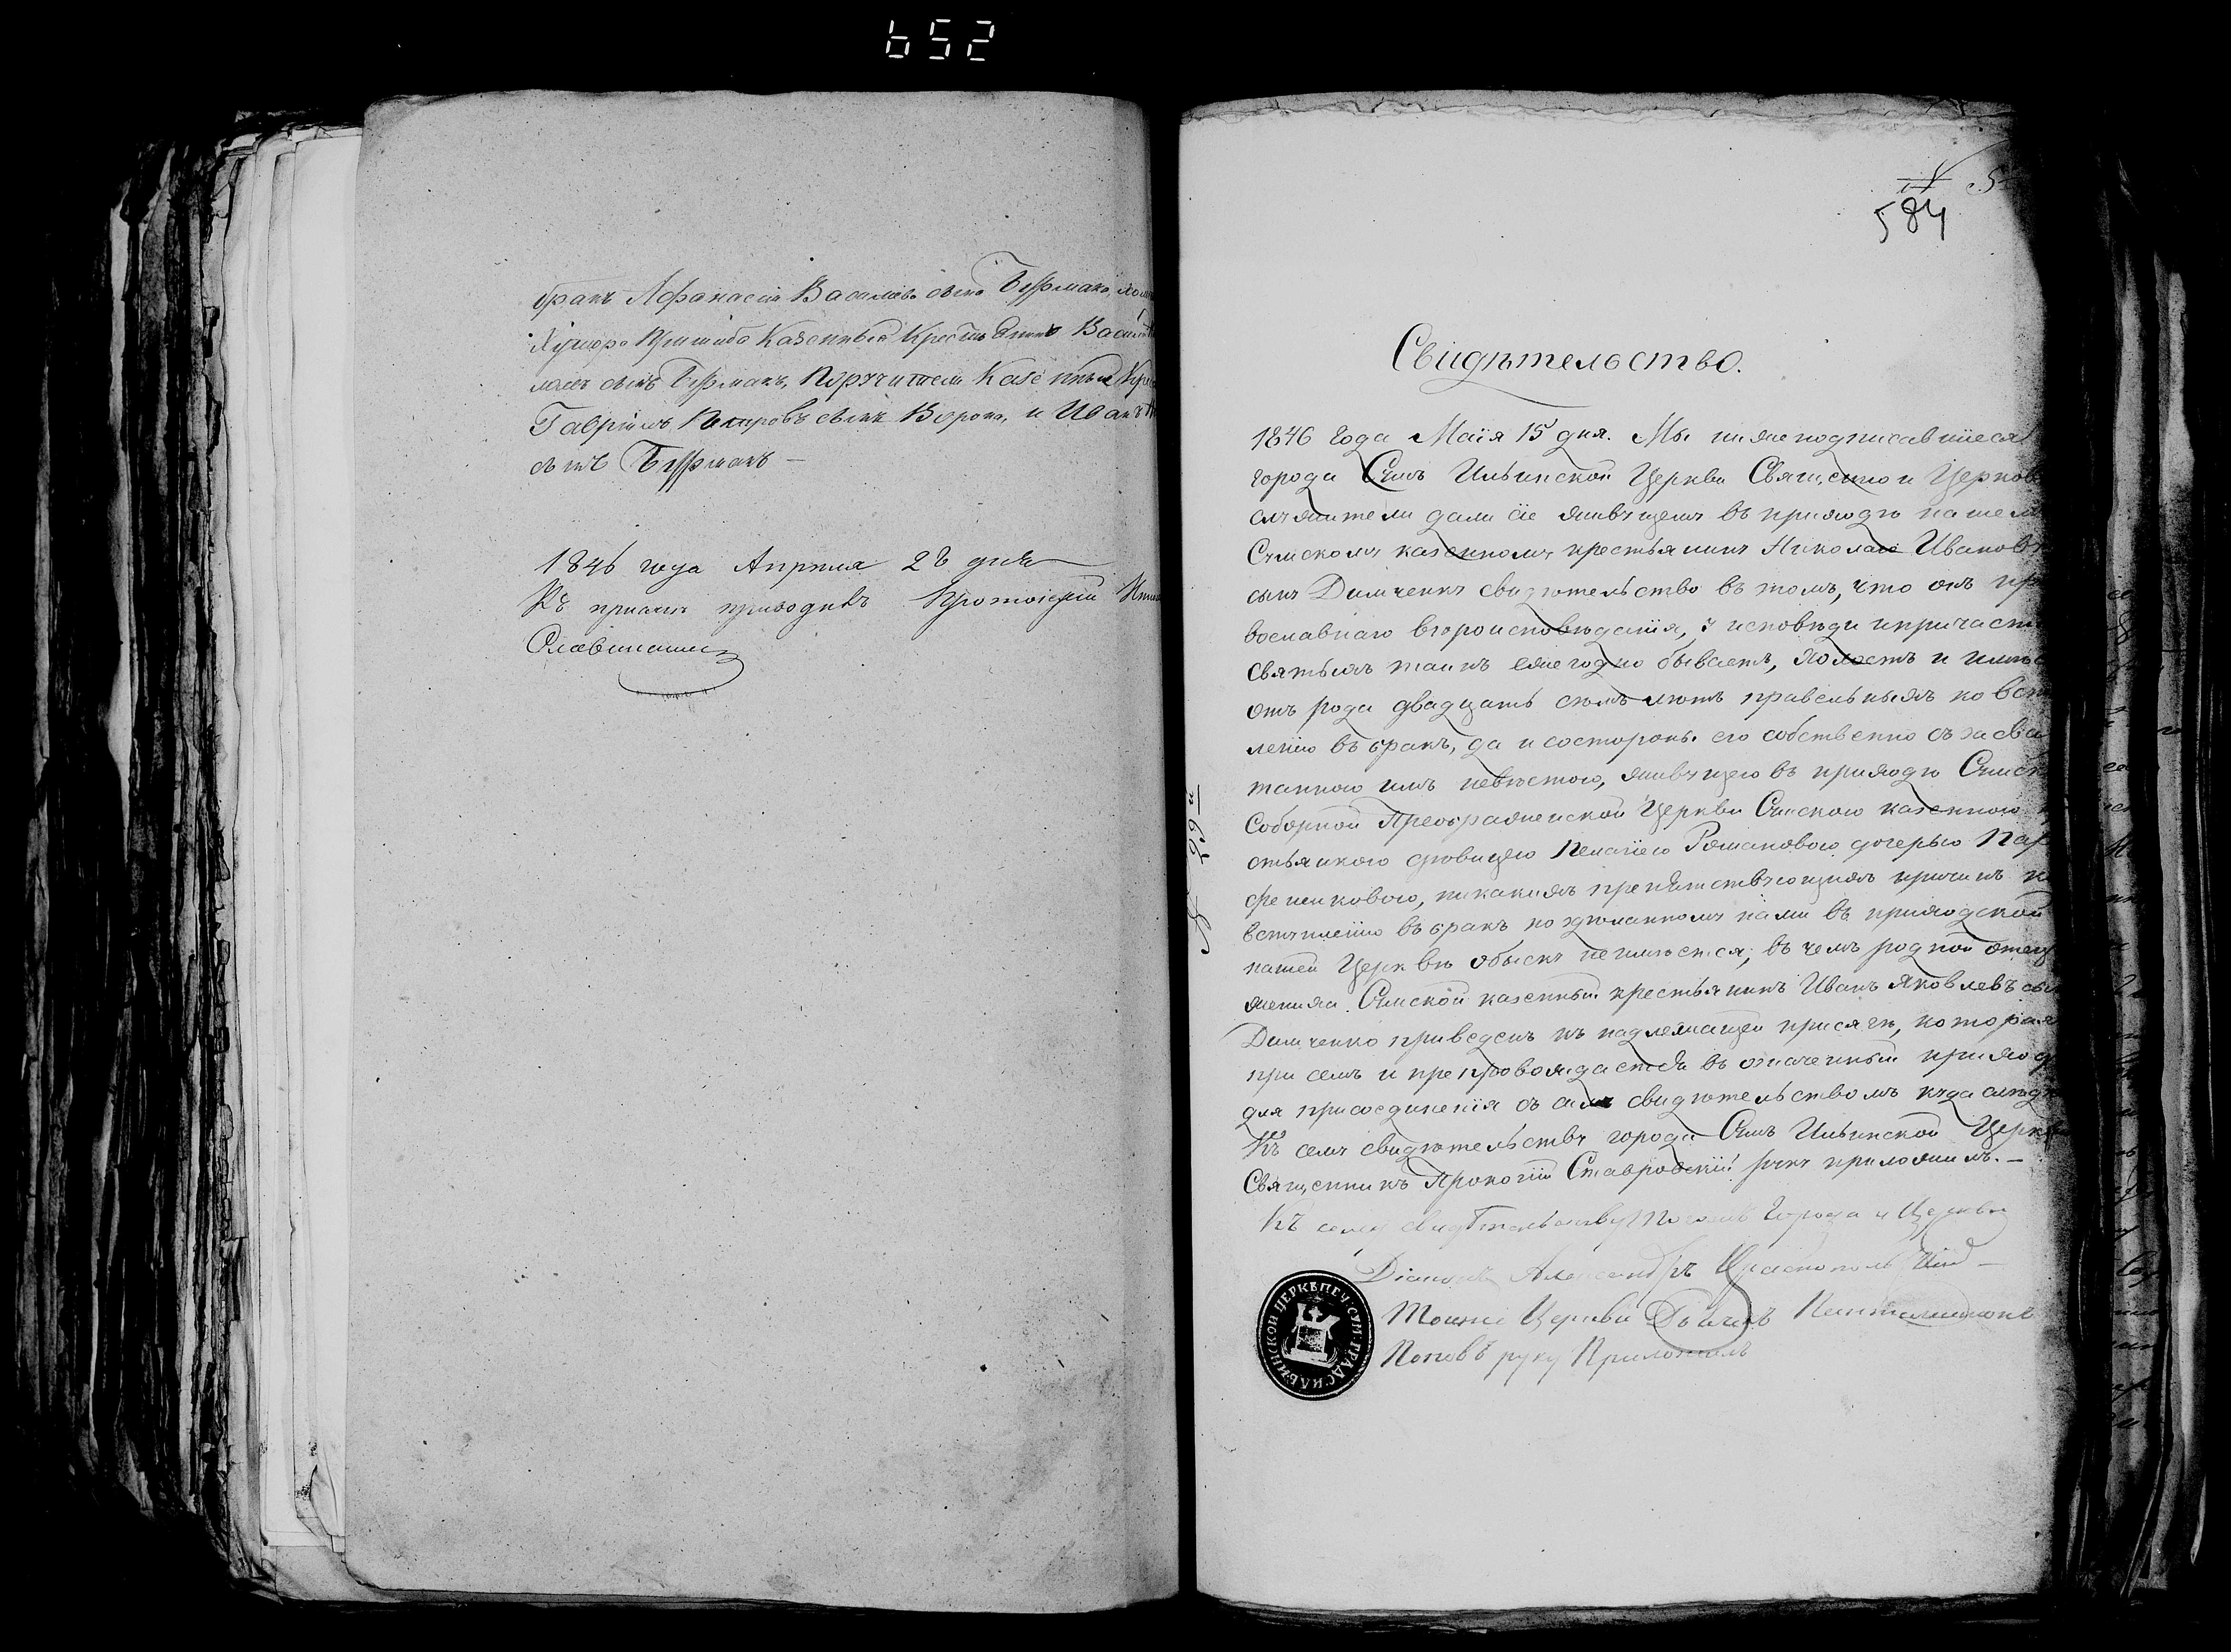 652
бракъ Афанасія Васильева сына Бурмака,
Хутора Казенный Крестьянинъ
сынъ Бурмакъ, Поручители Казенныя
Гавріилъ Петровъ сынъ Ворона, и Иванъ
сынъ Бурмакъ —
1846 года Апреля 28 дня
Къ присяги приводилъ Протоіерей
584
Свидѣтельство.
1846 года Маія 15 дня. Мы нижеподписавшіеся
города Сумъ Ильинской Церкви Священно и Церков
служители дали сіе живущему въ приходѣ нашем
Сумскому казенному крестьянину Николаю Иванов
сыну Демченку свидѣтельство въ томъ, что онъ пр
вославнаго вѣроисповѣданія, у исповѣди и причаст
святыхъ таинъ ежегодно бываетъ, холостъ и имѣе
отъ рода двадцать семъ лѣтъ правельныхъ ко всту
ленію въ бракъ, да и состороны его собственно съ засва
танною имъ невѣстою, живущею въ приходѣ Сумск
Соборной Преображенской Церкви Сумскою казенною к
стьянкою дѣвицею Пелагіею Романовою дочерью Пар
фененковою, никакихъ препятствующихъ причинъ к
вступленію въ бракъ по здѣланному нами въ приходской
нашей Церквѣ обыску неимѣется; въ чемъ родной отец
жениха Сумской казенный крестьянинъ Иванъ Яковлевъ сы
Демченко приведенъ къ надлежащей присягѣ, которая
при семъ и препровождается въ означенный приход
для присоединенія съ симъ свидѣтельствомъ куда слѣду
Къ сему свидѣтельству города Сумъ Ильинской Церкв
Священникъ Прокопій Ставровскій руку приложилъ. —
Къ сему свидѣтельству Города и Церкви
Діаконъ Александръ
Тоижъ Церкви Дьячекъ Пантелимонъ
Поповъ руку Приложилъ
ПЕЧ: СУМ: ГРАДС: ИЛЬИНСКОЙ ЦЕРКВ